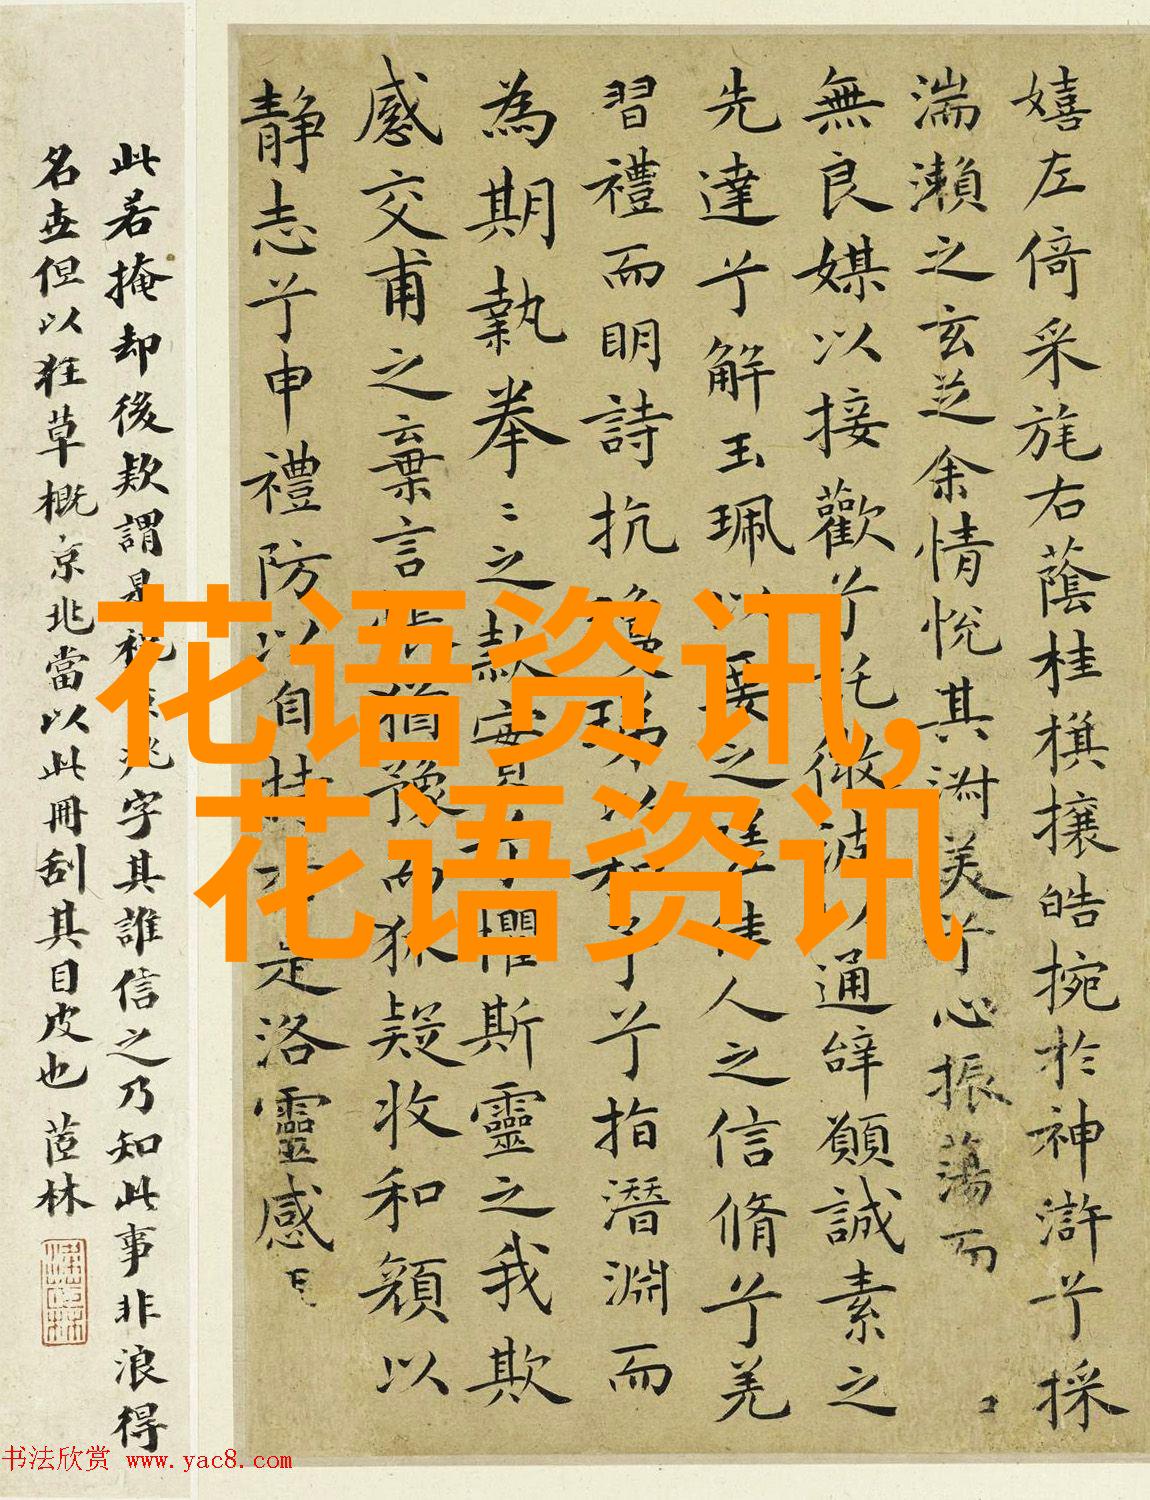 嬉左倚采旄右蔭桂旗攘皓捥於神滸兮採
湍瀨之玄芝余情悅其淑美兮心振蕩而
無良媒以接歡兮託微波以通辭願誠素之
先達兮解玉珮以要之嗟佳人之信脩兮羌
習禮而明詩抗瓊珶以和予兮指潛淵而
為期執拳〻之款實兮懼斯靈之我欺
感交甫之棄言悵猶豫而狐疑收和顏以
靜志兮申禮防以自持兮是洛靈感
此若掩却後款謂是祝京兆字其誰信之乃知此事非浪得
名世但以狂草概京兆當以此冊刮其目皮也 茝林
花语资讯,
花语资讯
书法欣赏 www.yac8.com